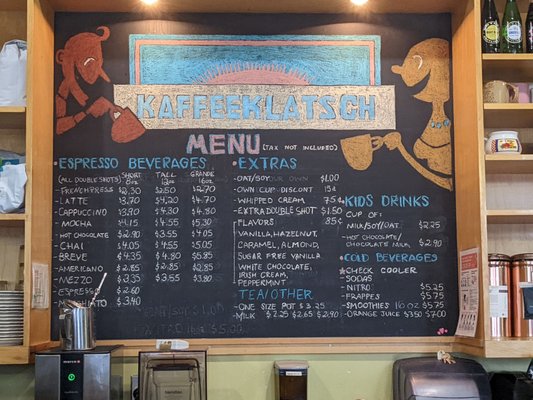 KAFFEEKLATSCH
MENU (TAX NOT INCLUDED)
ESPRESSO BEVERAGES SHORT TALL GRANDE
(ALL DOUBLE SHOTS) 8oz 12oz 16oz
FRENCH PRESS $2.30 $2.50 $2.70
LATTE $3.70 $4.20 $4.70
CAPPUCCINO $3.90 $4.30 $4.80
MOCHA $4.15 $4.55 $5.30
HOT CHOCOLATE $2.90 $3.55 $4.05
CHAI $4.05 $4.55 $5.05
BREVE $4.35 $4.80 $5.85
AMERICANO $2.85 $2.85 $2.85
MEZZO $3.35 $3.55 $3.80
ESPRESSO $2.60
MACCHIATO $3.40
EXTRAS
OAT/SOY $1.00
OWN CUP DISCONT 15¢
WHIPPED CREAM 75¢
EXTRA DOUBLE SHOT $1.50
FLAVORS: 85¢
VANILLA, HAZELNUT,
CARAMEL, ALMOND,
SUGAR FREE VANILLA
WHITE CHOCOLATE,
IRISH CREAM,
PEPPERMINT
TEA/OTHER
ONE SIZE POT $3.25
MILK $2.25 $2.65 $2.90
KIDS DRINKS
CUP OF:
MILK/SOY/OAT: $2.25
HOT CHOCOLATE/
CHOCOLATE MILK $2.90
COLD BEVERAGES
CHECK COOLER
SODAS
NITRO $5.25
FRAPPES $5.75
SMOOTHIES 16oz $5.75
ORANGE JUICE $3.50 $7.00